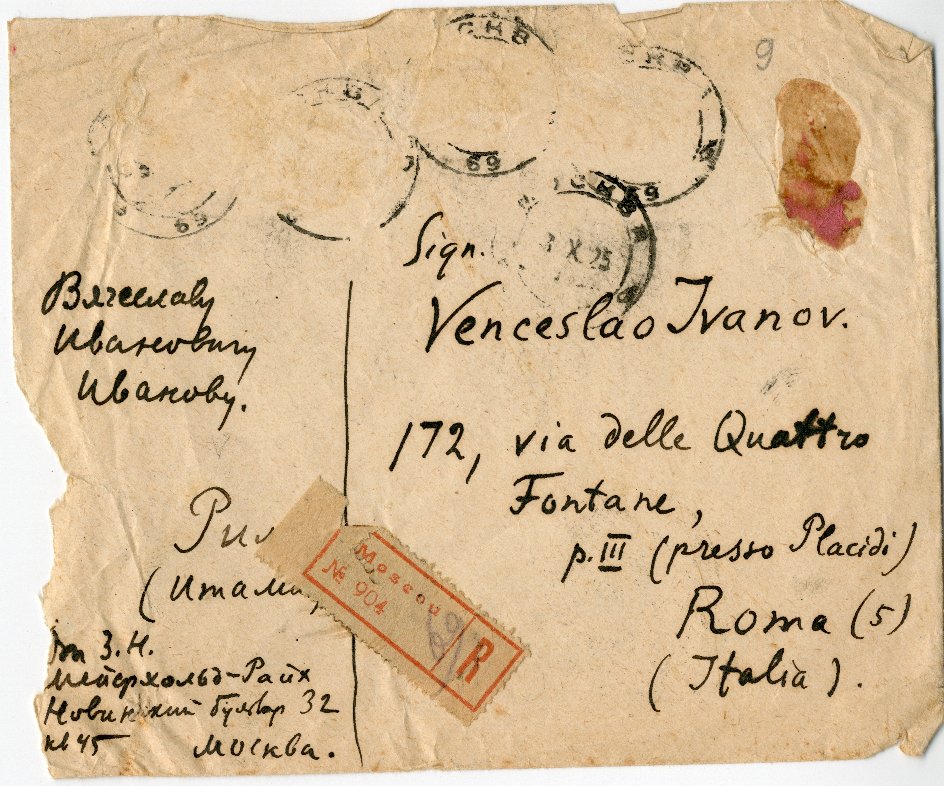 9
69
69
69
3 X 25
Вячеславу
Ивановичу
Иванову.
Sign.
Venceslao Ivanov.
172, via delle Quattro
Fontane,
p. III (presso Placidi)
Roma (5)
(Italia).
Moscou
№ 904
R
З. Н.
Мейерхольд-Райх
Новинский бульвар 32
кв 45
Москва.